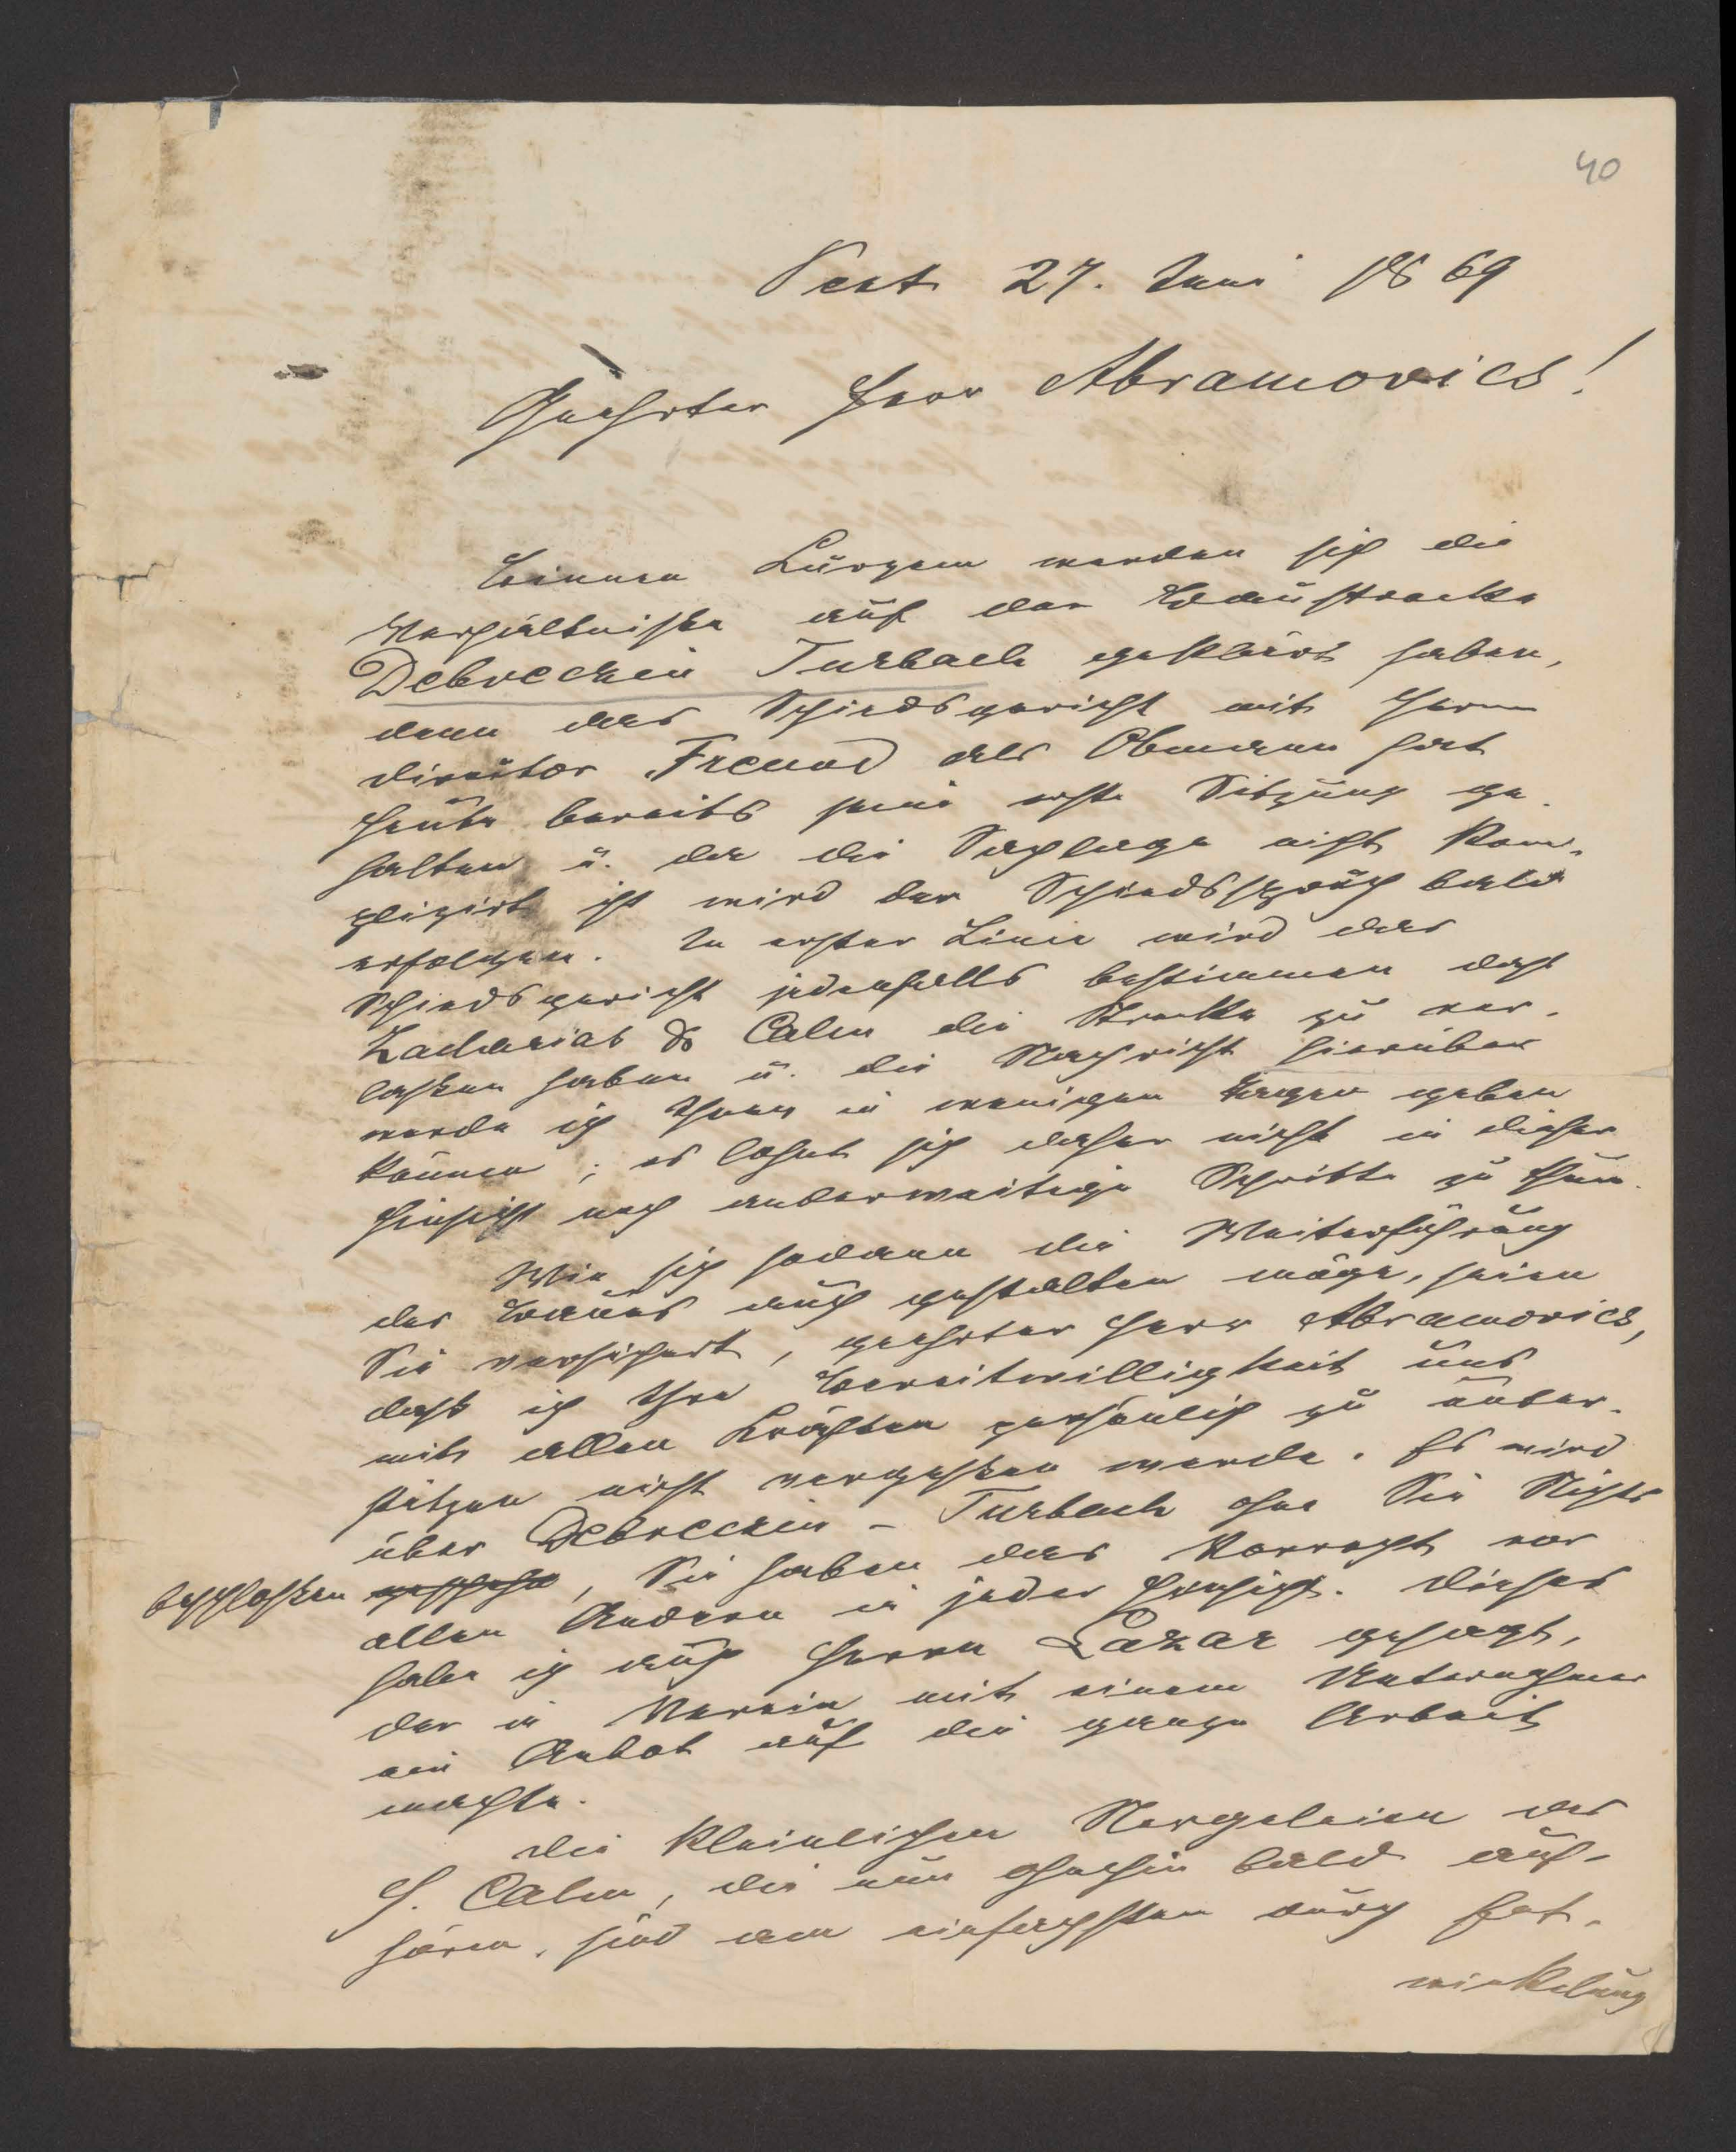 40
Pest 27. Juni 1869
Geehrter Herr Abramovics!
Binnen Kurzem werden sich die
Verhältnisse auf der Baustrecke
Debreczin Turbach geklärt haben,
denn das Schiedsgericht mit Herrn
Direktor Freund als Obmann hat
heute bereits seine erste Sitzung ge-
halten u. da die Sachlage nicht kom-
plizirt ist wird der Schiedsspruch bald
erfolgen. In erster Linie wird das
Schiedsgericht jedenfalls bestimmen dass
Zacharias & Calm die Strecke zu ver-
lassen haben u. die Nachricht hierüber
werde ich Ihnen in wenigen Tagen geben
können; es lohnt sich daher nicht in dieser
Hinsicht noch anderweitige Schritte zu thun.
Wie sich sodann die Weiterführung
des Baues auch gestalten möge, seien
Sie versichert, geehrter Herr Abramovics,
dass ich Ihre Bereitwilligkeit uns
mit allen Kräften persönlich zu unter-
stützen nicht vergessen werde. Es wird
über Debreczin - Turbach ohne Sie Nichts
beschlossen, Sie haben das Vorrecht vor
allen Andern in jeder Hinsicht. Dieses
habe ich auch Herrn Lazar gesagt,
der in Verein mit einem Unternehmer
ein Anbot auf die ganze Arbeit
machte.
Die kleinlichen Nergeleien des
H. Calm, die nun ohnehin bald auf-
hören, sind am einfachsten durch Ent-
wickelung